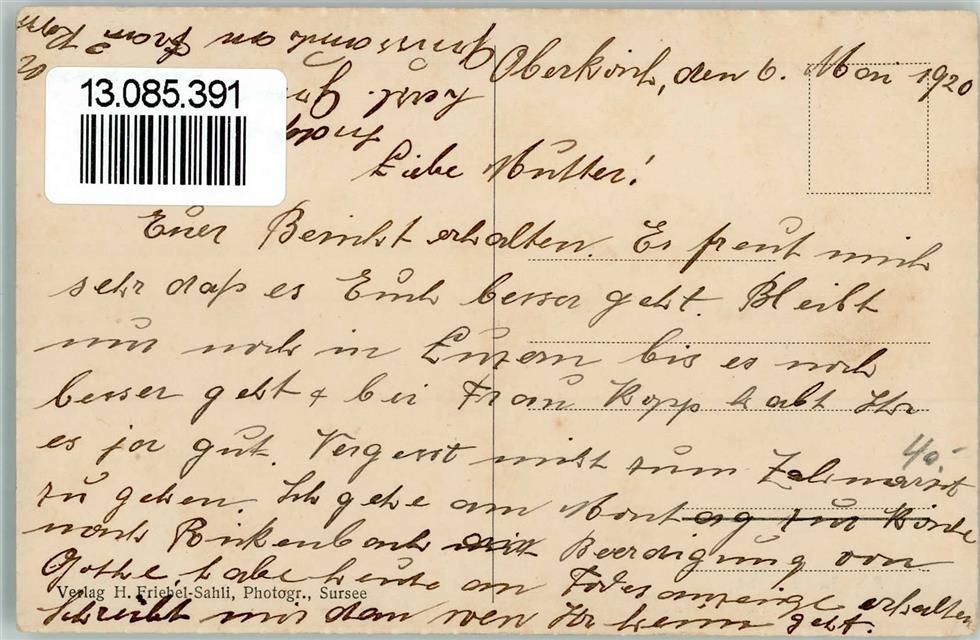 Oberkirch, den 6. Mai 1920
13.085.391
Liebe Mutter!
Euer Bericht erhalten. Es freut mich
sehr daß es Euch besser geht. Bleibt
nur noch in Luzern bis es noch
besser geht & bei Frau Kopp habt Ihr
es ja gut. Vergesst nicht zum Zahnarzt
40.-
zu gehen. Ich gehe am Montag zur
nach Rickenbach Beerdigung von
Gotte, habe heute am Todesanzeige erhalten
Verlag H. Friebel-Sahli, Photogr., Sursee
Schreibt mir dann wen Ihr heim geht.